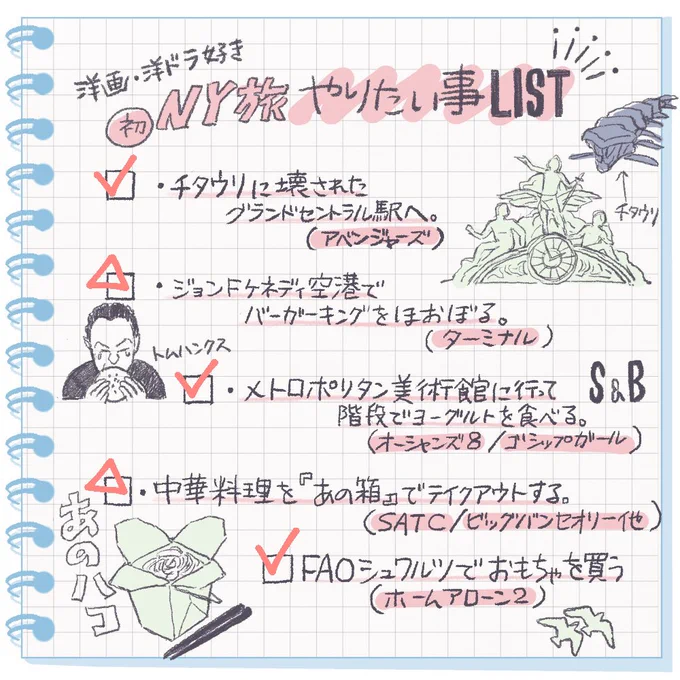 洋画・洋ドラ好き
初NY旅 やりたい事LIST
・チタウリに壊された
グランドセントラル駅へ。
(アベンジャーズ)
チタウリ
・ジョンFケネディ空港で
バーガーキングをほおぼる。
(ターミナル)
トムハンクス
・メトロポリタン美術館に行って
階段でヨーグルトを食べる。
(オーシャンズ8/ゴシップガール)
S&B
・中華料理を『あの箱』でテイクアウトする。
(SATC/ビッグバンセオリー他)
あのハコ
FAOシュワルツでおもちゃを買う
(ホームアローン2)